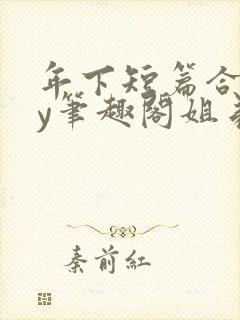 年下短篇合
y筆趣閣姐弟
秦前紅